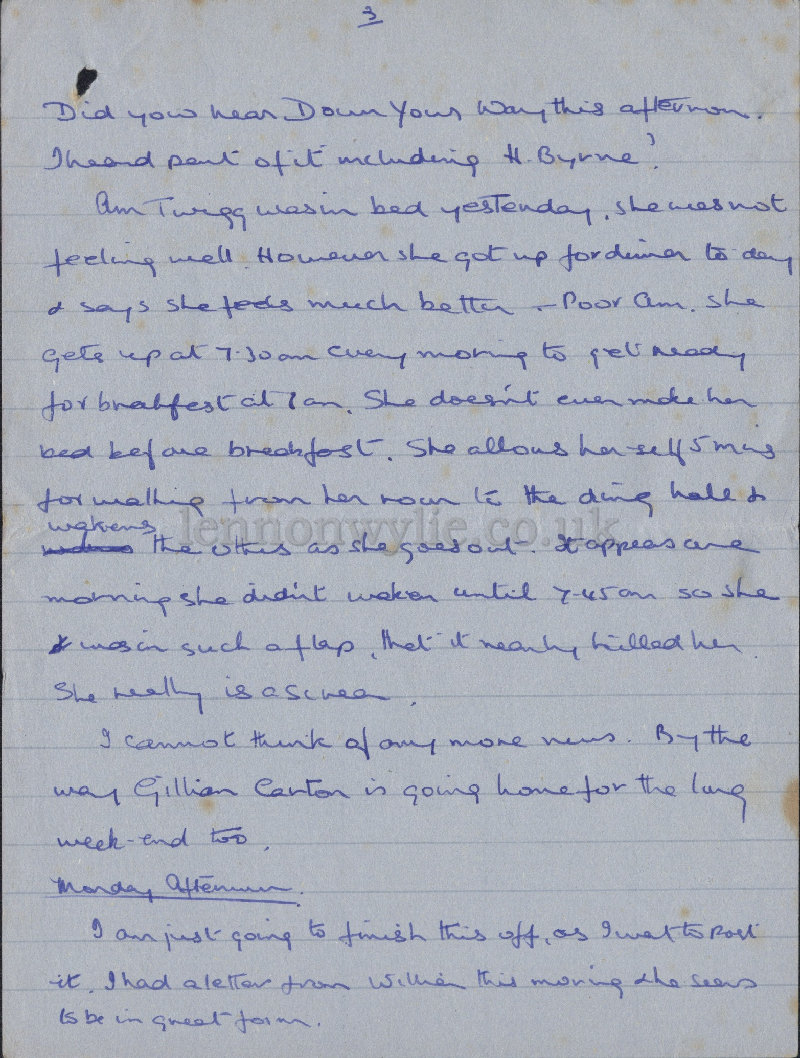 3
Did you hear Down Your Way this afternoon.
I heard part of it including H. Byrne?
Am Twigg was in bed yesterday, she was not
feeling well. However she got up for dinner to day
& says she feels much better - Poor Am. she
gets up at 7-30 am every morning to get ready
for breakfast at 8 am. She doesn't even make her
bed before breakfast. She allows her-self 5 mins
for walking from her room to the dining hall &
wakens
the others as she goes out. It appears one
morning she didn't waken until 7-45 am so she
was in such a flap, that it nearly killed her.
She really is a scream.
I cannot think of any more news. By the
way Gillian Carton is going home for the long
week-end too.
Monday Afternoon.
I am just going to finish this off, as I want to post
it. I had a letter from William this morning & he seems
to be in great form.
lennonwylie.co.uk